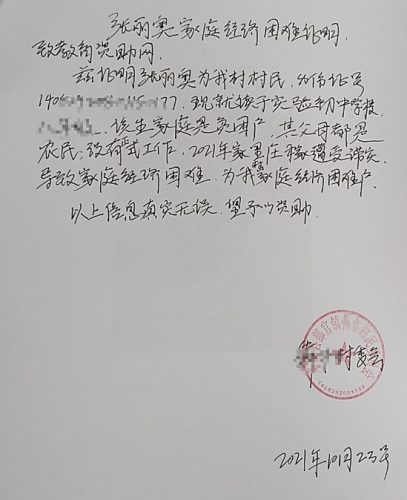 张丽奥家庭经济困难证明
致教育资助网
兹证明张丽奥为我村村民,身份证号
140 177,现就读于实验初中学校
该生家庭是贫困户,其父母都是
农民,没有正式工作,2021年家里庄稼遭受涝灾
导致家庭经济困难,为我家庭经济困难户
以上信息真实无误,望予以资助.
村委会
2021年10月23号